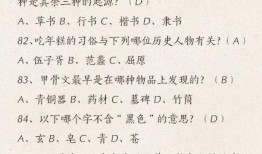 种是其余三种的起源？（D）
A、草书 B、行书 C、楷书 D、隶书
82、吃年糕的习俗与下列哪位历史人物有关？（A）
A、伍子胥 B、范蠡 C、屈原
83、甲骨文最早是在哪种物品上发现的？（B）
A、青铜器 B、药材 C、墓碑 D、竹简
84、以下哪个字不含“黑色”的意思？（D）
A、玄 B、皂 C、青 D、苍